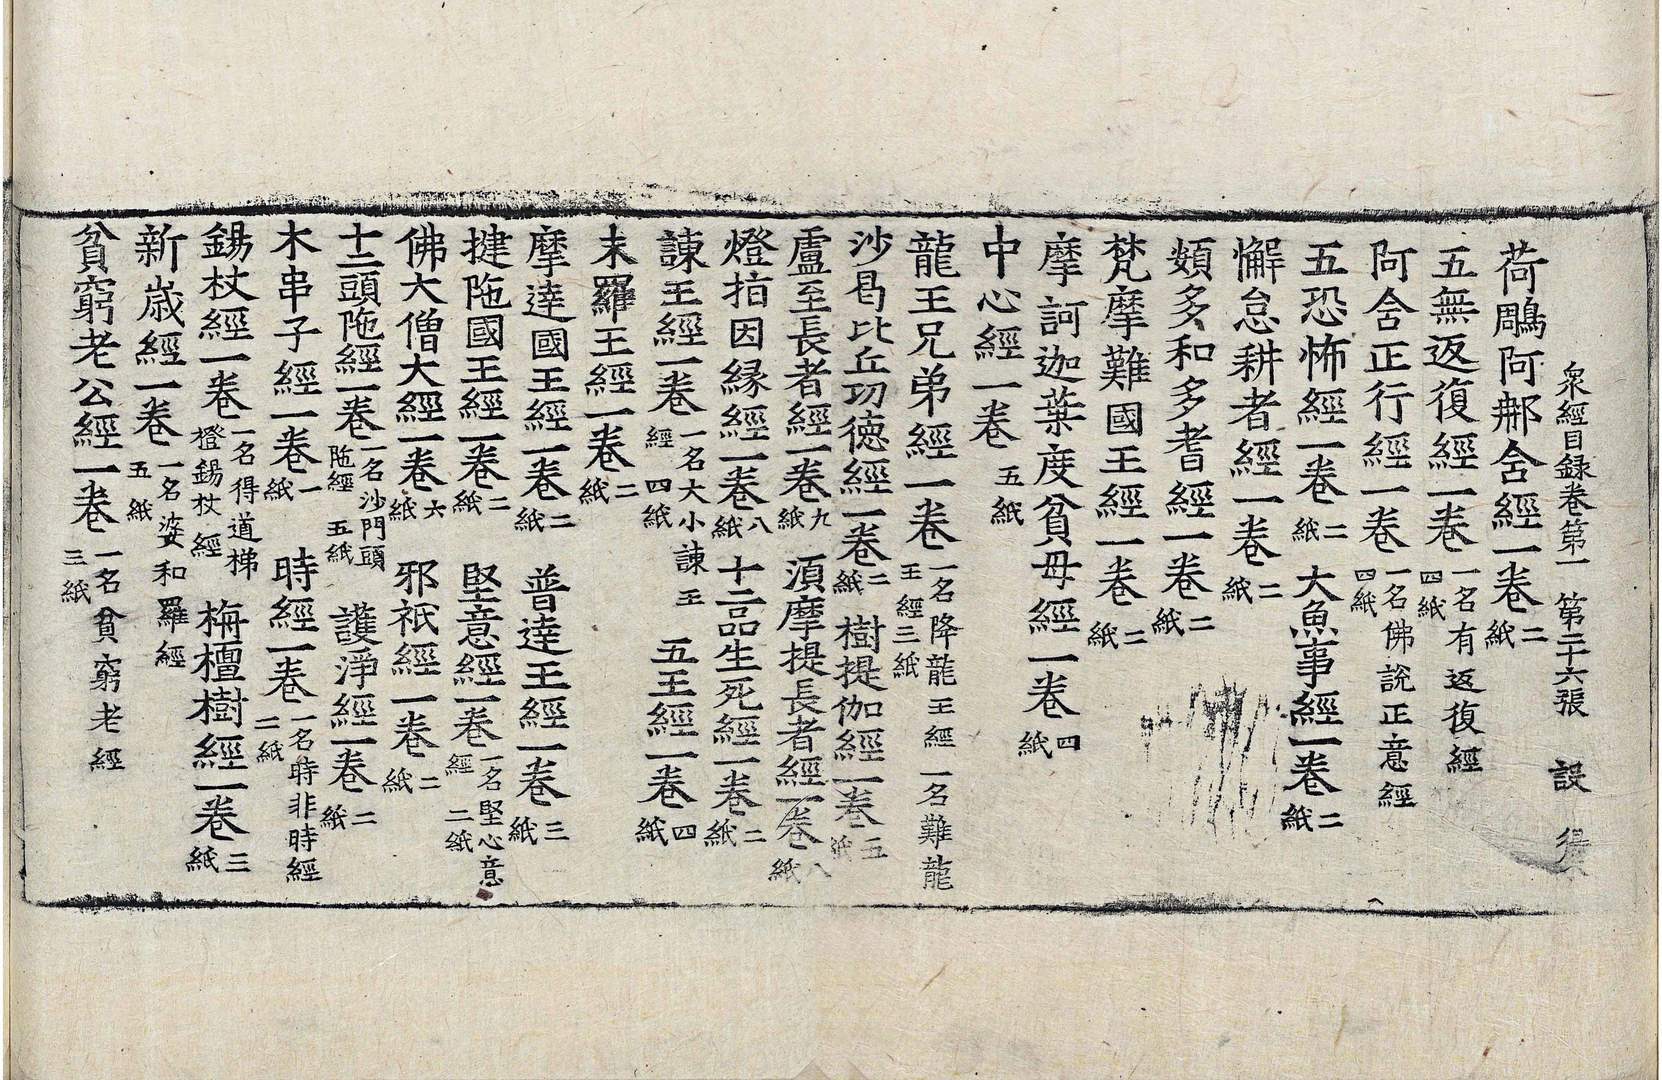 衆經目録卷第一 第二十六張 設
荷鵰阿郍含經一卷二紙
五無返復經一卷一名有返復經四紙
阿含正行經一卷一名佛說正意經四紙
五恐怖經一卷二紙 大魚事經一卷二紙
懈怠耕者經一卷二紙
頞多和多耆經一卷二紙
梵摩難國王經一卷二紙
摩訶迦葉度貧母經一卷四紙
中心經一卷五紙
龍王兄弟經一卷一名降龍王經一名難龍王經三紙
沙曷比丘功德經一卷二紙 樹提伽經一卷五紙
盧至長者經一卷九紙 湏摩提長者經一卷八紙
燈指因緣經一卷八紙 十二品生死經一卷二紙
諫王經一卷一名大小諫王經四紙 五王經一卷四紙
末羅王經一卷二紙
摩達國王經一卷二紙 普達王經一卷三紙
揵陁國王經一卷二紙 堅意經一卷一名堅心意經二紙
佛大僧大經一卷六紙 邪祇經一卷二紙
十二頭陁經一卷一名沙門頭陁經五紙 護淨經一卷二紙
木串子經一卷一紙 時經一卷一名時非時經二紙
錫杖經一卷一名得道梯橙錫杖經 栴檀樹經一卷三紙
新歲經一卷一名婆和羅經五紙
貧窮老公經一卷一名貧窮老經三紙